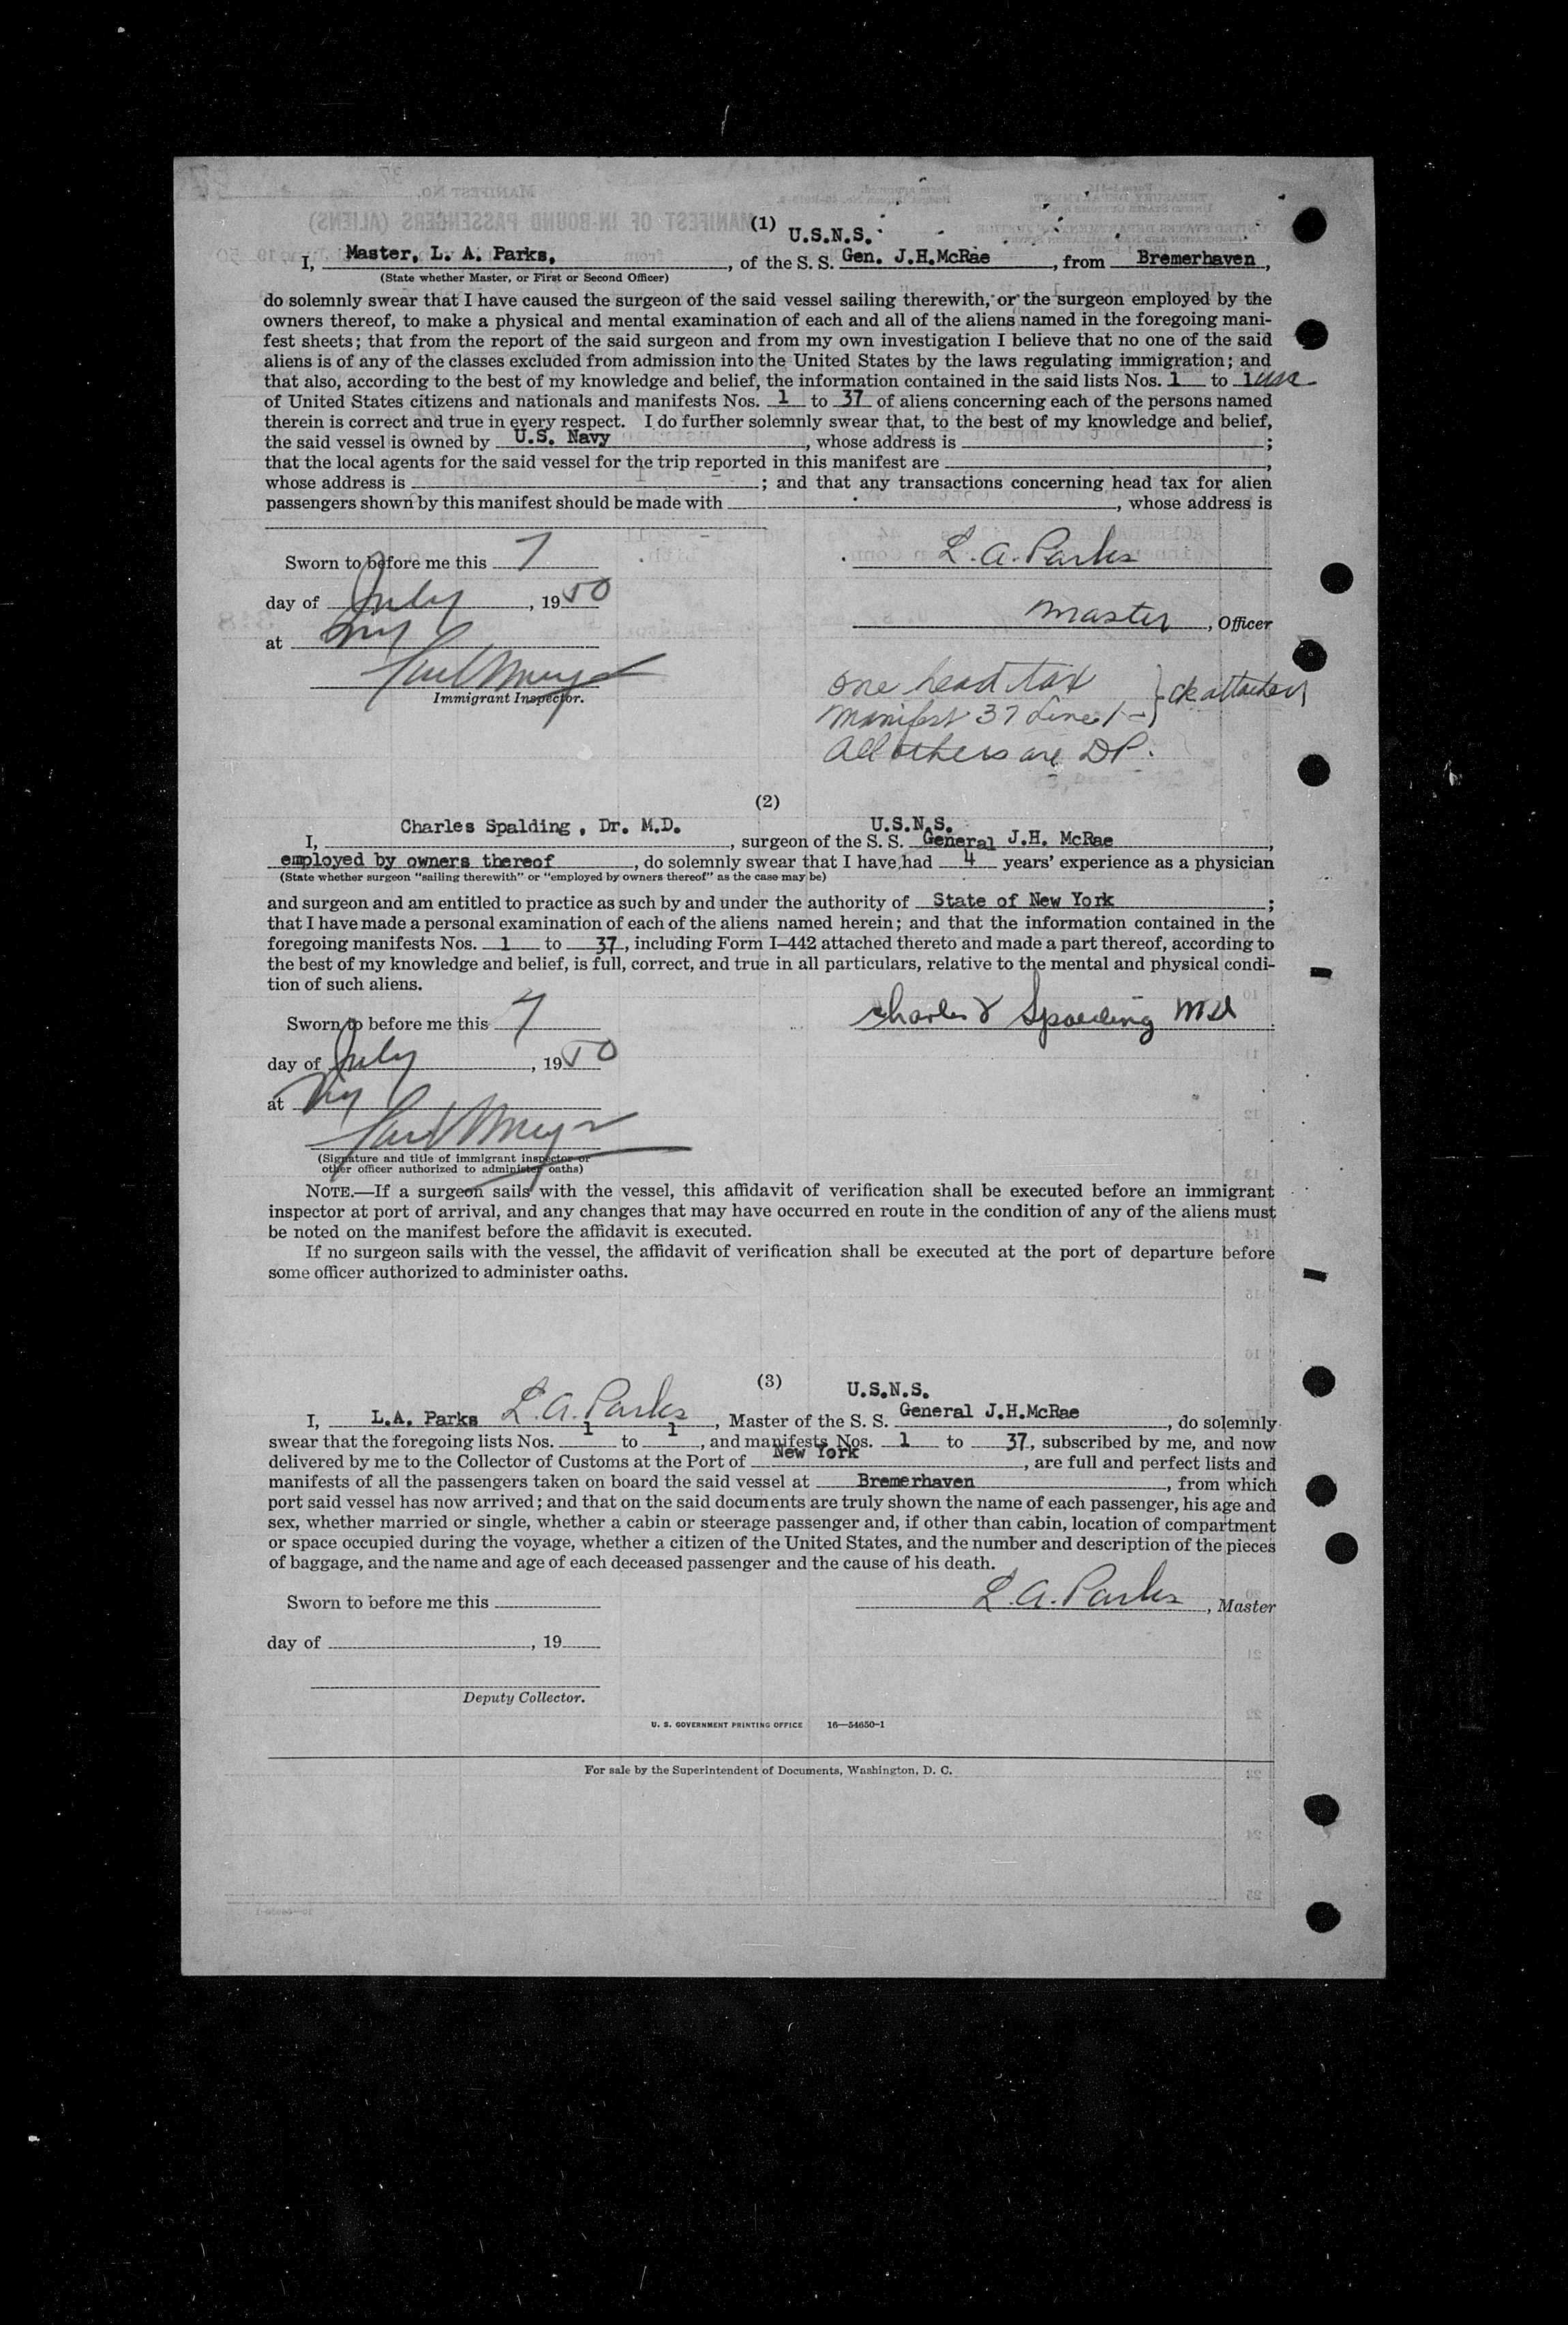 (1)
U.S.N.S.
I, Master, L. A. Parks, , of the S. S. Gen. J.H.McRae , from Bremerhaven ,
(State whether Master, or First or Second Officer)
do solemnly swear that I have caused the surgeon of the said vessel sailing therewith, or the surgeon employed by the
owners thereof, to make a physical and mental examination of each and all of the aliens named in the foregoing mani-
fest sheets; that from the report of the said surgeon and from my own investigation I believe that no one of the said
aliens is of any of the classes excluded from admission into the United States by the laws regulating immigration; and
that also, according to the best of my knowledge and belief, the information contained in the said lists Nos. 1 to 1
of United States citizens and nationals and manifests Nos. 1 to 37 of aliens concerning each of the persons named
therein is correct and true in every respect. I do further solemnly swear that, to the best of my knowledge and belief,
the said vessel is owned by U.S. Navy , whose address is ;
that the local agents for the said vessel for the trip reported in this manifest are ,
whose address is ; and that any transactions concerning head tax for alien
passengers shown by this manifest should be made with , whose address is
Sworn to before me this 7 L. A. Parks
day of July , 1950
master , Officer
at NY
Immigrant Inspector.
One head tax
Manifest 37 Line 1 - } ck attached
All others are DP.
(2)
Charles Spalding , Dr. M.D. U.S.N.S.
I, , surgeon of the S. S. General J.H. McRae ,
employed by owners thereof , do solemnly swear that I have had 4 years' experience as a physician
(State whether surgeon "sailing therewith" or "employed by owners thereof" as the case may be)
and surgeon and am entitled to practice as such by and under the authority of State of New York ;
that I have made a personal examination of each of the aliens named herein; and that the information contained in the
foregoing manifests Nos. 1 to 37, including Form I–442 attached thereto and made a part thereof, according to
the best of my knowledge and belief, is full, correct, and true in all particulars, relative to the mental and physical condi-
tion of such aliens.
Sworn to before me this 7 Charles Spalding MD
day of July , 1950
at NY
(Signature and title of immigrant inspector or
other officer authorized to administer oaths)
NOTE.—If a surgeon sails with the vessel, this affidavit of verification shall be executed before an immigrant
inspector at port of arrival, and any changes that may have occurred en route in the condition of any of the aliens must
be noted on the manifest before the affidavit is executed.
If no surgeon sails with the vessel, the affidavit of verification shall be executed at the port of departure before
some officer authorized to administer oaths.
(3)
U.S.N.S.
I, L.A. Parks L. A. Parks , Master of the S. S. General J.H.McRae , do solemnly
swear that the foregoing lists Nos. 1 to 1 , and manifests Nos. 1 to 37, subscribed by me, and now
delivered by me to the Collector of Customs at the Port of New York , are full and perfect lists and
manifests of all the passengers taken on board the said vessel at Bremerhaven , from which
port said vessel has now arrived; and that on the said documents are truly shown the name of each passenger, his age and
sex, whether married or single, whether a cabin or steerage passenger and, if other than cabin, location of compartment
or space occupied during the voyage, whether a citizen of the United States, and the number and description of the pieces
of baggage, and the name and age of each deceased passenger and the cause of his death.
Sworn to before me this L. A. Parks , Master
day of , 19
Deputy Collector.
U. S. GOVERNMENT PRINTING OFFICE 16—54650-1
For sale by the Superintendent of Documents, Washington, D. C.